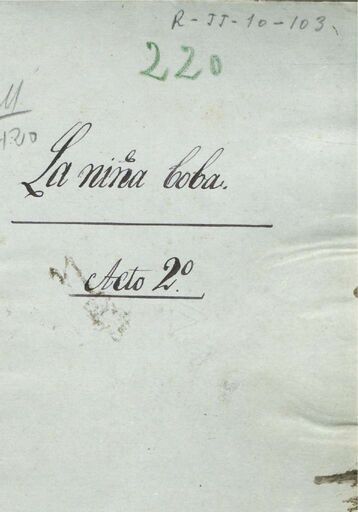 R-II-10-103.
220
M
La niña boba.
Acto 2.º